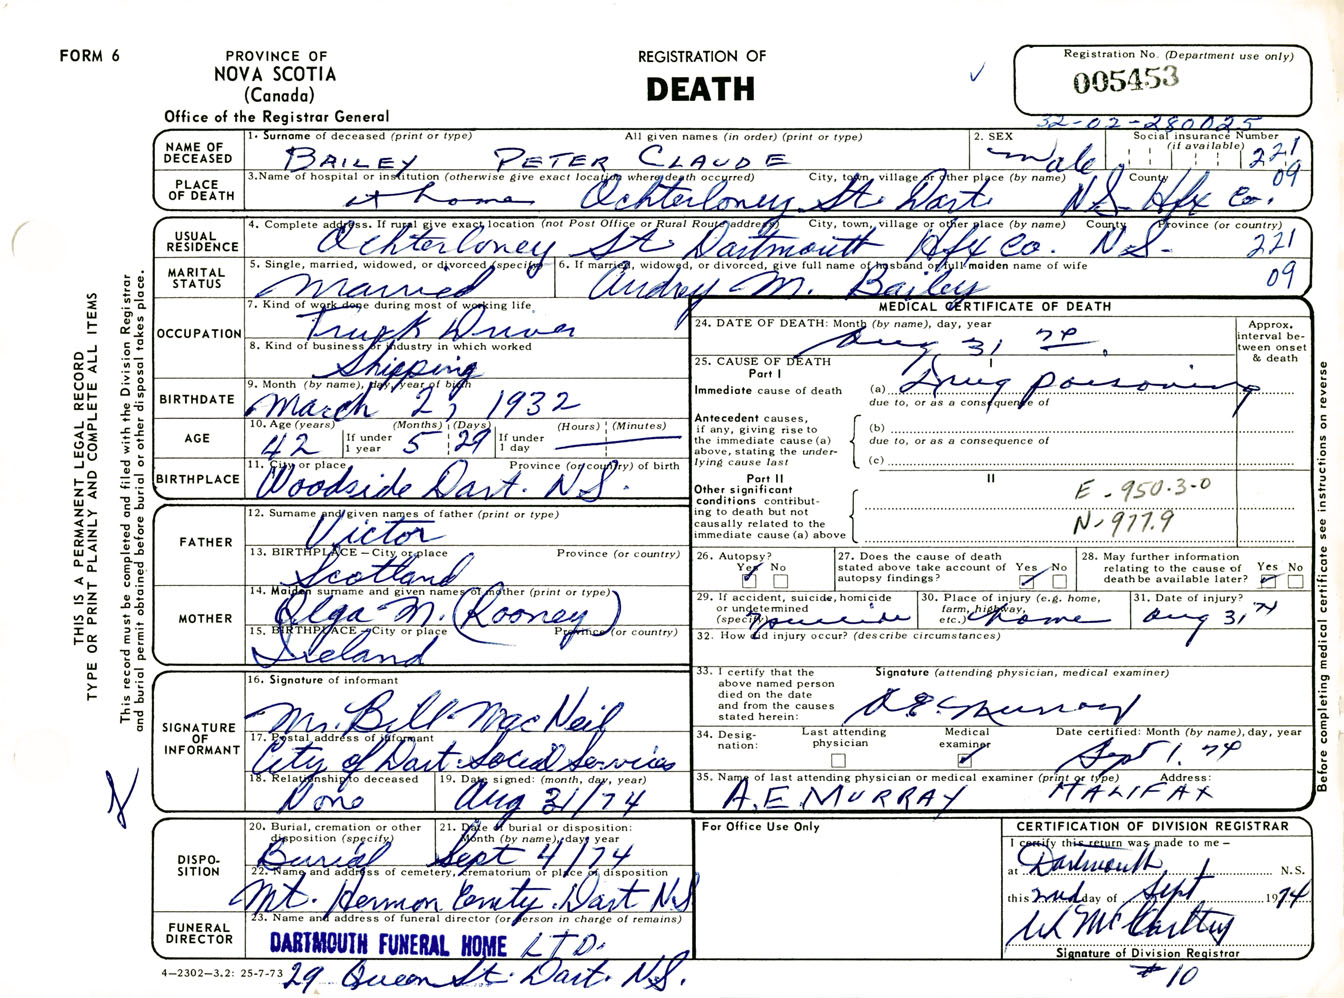 FORM 6
PROVINCE OF
NOVA SCOTIA
(Canada)
Office of the Registrar General
REGISTRATION OF
DEATH
Registration No. (Department use only)
005453
32-02-280025
NAME OF DECEASED
1. Surname of deceased (print or type) All given names (in order) (print or type)
BAILEY PETER CLAUDE
2. SEX
Male
Social insurance Number (if available)
221
09
PLACE OF DEATH
3. Name of hospital or institution (otherwise give exact location where death occurred) City, town, village or other place (by name) County
at home Ochterloney St. Dart. N.S. Hfx Co.
USUAL RESIDENCE
4. Complete address. If rural give exact location (not Post Office or Rural Route address) City, town, village or other place (by name) County Province (or country)
Ochterloney St Dartmouth Hfx Co. N.S. 221
09
MARITAL STATUS
5. Single, married, widowed, or divorced (specify)
Married
6. If married, widowed, or divorced, give full name of husband or full maiden name of wife
Audrey M. Bailey
OCCUPATION
7. Kind of work done during most of working life
Truck Driver
8. Kind of business or industry in which worked
Shipping
BIRTHDATE
9. Month (by name), day, year of birth
March 2, 1932
AGE
10. Age (years) If under 1 year (Months) (Days) If under 1 day (Hours) (Minutes)
42 5 29
BIRTHPLACE
11. City or place Province (or country) of birth
Woodside Dart. N.S.
FATHER
12. Surname and given names of father (print or type)
Victor
13. BIRTHPLACE – City or place Province (or country)
Scotland
MOTHER
14. Maiden surname and given names of mother (print or type)
Olga M. (Rooney)
15. BIRTHPLACE – City or place Province (or country)
Ireland
SIGNATURE OF INFORMANT
16. Signature of informant
Mr. Bill MacNeil
17. Postal address of informant
City of Dart. Social Services
18. Relationship to deceased
None
19. Date signed: (month, day, year)
Aug 31/74
DISPO-
SITION
20. Burial, cremation or other disposition (specify)
Burial
21. Date of burial or disposition: Month (by name), day, year
Sept 4/74
22. Name and address of cemetery, crematorium or place of disposition
Mt. Hermon Cemty. Dart N.S
FUNERAL DIRECTOR
23. Name and address of funeral director (or person in charge of remains)
DARTMOUTH FUNERAL HOME LTD.
29 Queen St. Dart. N.S.
4–2302–3.2: 25-7-73
MEDICAL CERTIFICATE OF DEATH
24. DATE OF DEATH: Month (by name), day, year
Aug 31 74
Approx. interval between onset & death
25. CAUSE OF DEATH
Part I
Immediate cause of death
(a) Drug poisoning
due to, or as a consequence of
Antecedent causes, if any, giving rise to the immediate cause (a) above, stating the underlying cause last
(b)
due to, or as a consequence of
(c)
Part II
II
Other significant conditions contributing to death but not causally related to the immediate cause (a) above
E-950.3-0
N-977.9
26. Autopsy?
Yes No
27. Does the cause of death stated above take account of autopsy findings? Yes No
28. May further information relating to the cause of death be available later? Yes No
29. If accident, suicide, homicide or undetermined (specify)
Suicide
30. Place of injury (e.g. home, farm, highway, etc.)
home
31. Date of injury?
Aug 31, 74
32. How did injury occur? (describe circumstances)
33. I certify that the above named person died on the date and from the causes stated herein:
Signature (attending physician, medical examiner)
A.E. Murray
34. Designation:
Last attending physician
Medical examiner
Date certified: Month (by name), day, year
Sept 1. 74
35. Name of last attending physician or medical examiner (print or type) Address:
A.E. MURRAY HALIFAX
For Office Use Only
CERTIFICATION OF DIVISION REGISTRAR
I certify this return was made to me –
at Dartmouth N.S.
this 2nd day of Sept 1974
W McCarthy
Signature of Division Registrar
#10
THIS IS A PERMANENT LEGAL RECORD
TYPE OR PRINT PLAINLY AND COMPLETE ALL ITEMS
This record must be completed and filed with the Division Registrar
and burial permit obtained before burial or other disposal takes place.
Before completing medical certificate see instructions on reverse